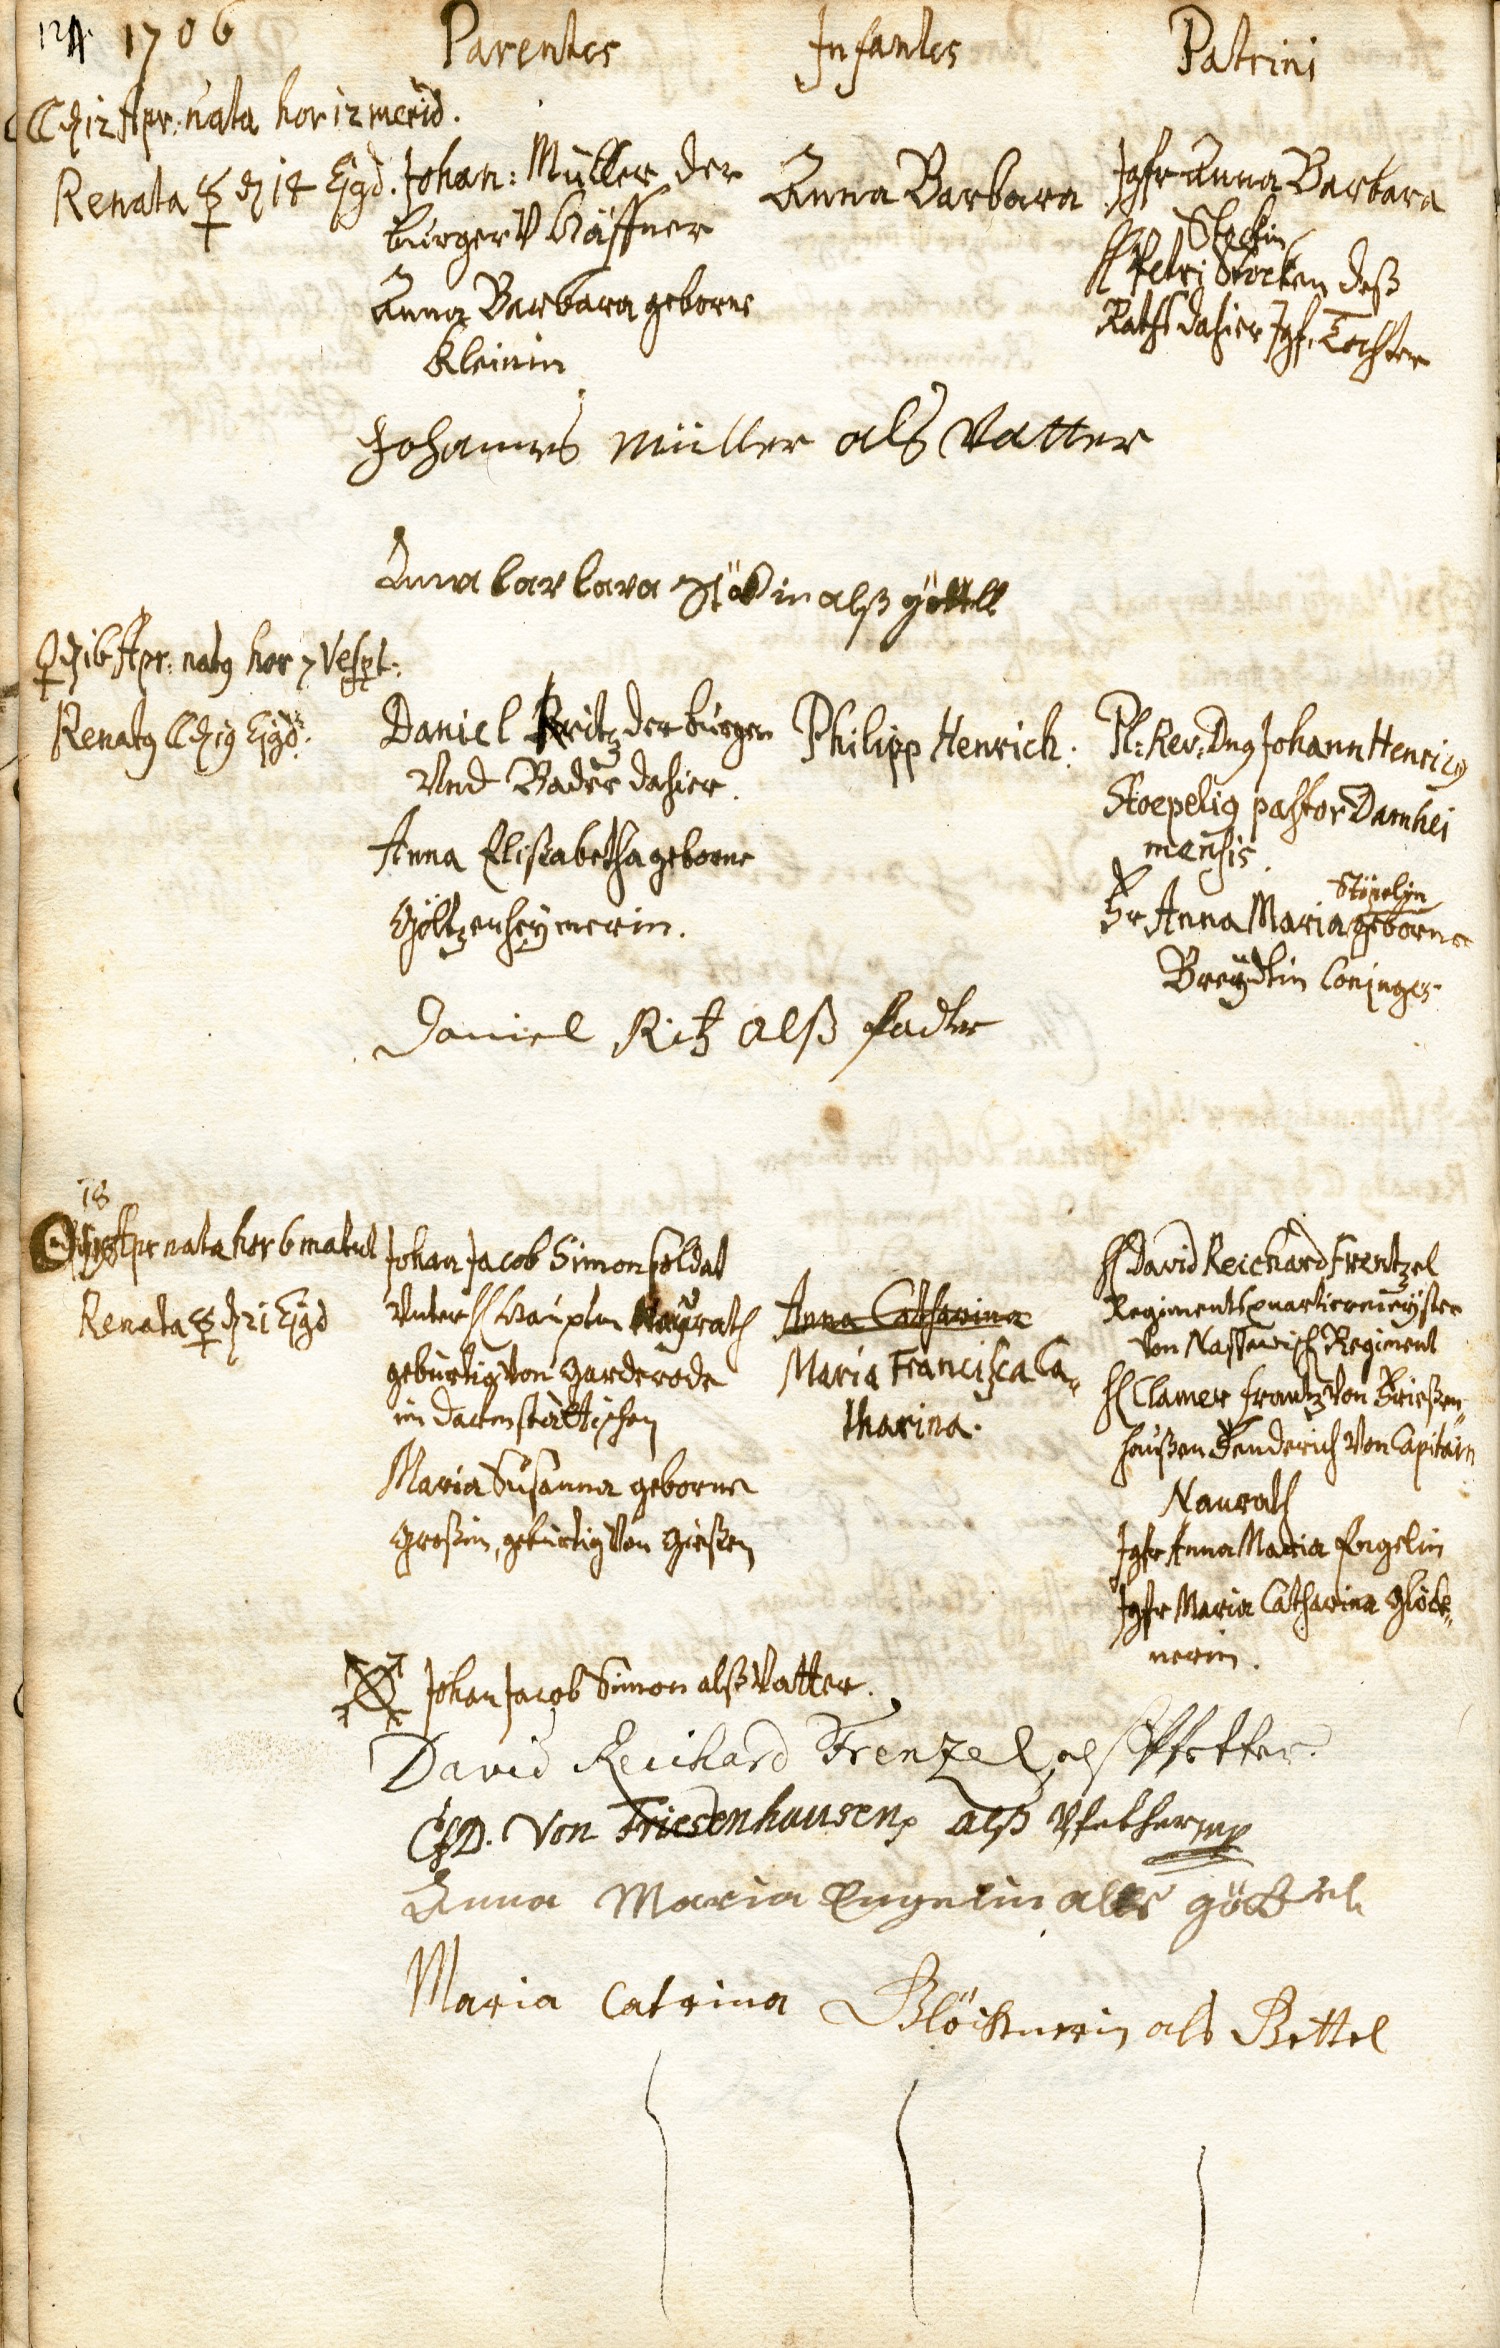 124. 1706 Parentes Infantes Patrini
☾ d 12 Apr: nata hor 12 merid.
Renata ☿ d 14 Ejgd.
Johan: Müller der
burger V Häffner
Anna Barbara geborne
Kleinin
Anna Barbara
Jgfr Anna Barbara
Stockin
H Petri Stocken deß
Raths dahier Jgf. Tochter
Johannes Müller als Vatter
Anna barbara Stöckin alß göttell
♀ d 16 Apr: natg hor 7 Vespt.
Renatg ☾ d 19 Ejgd.
Daniel Ritz der burger
Vnd Bader dahier.
Anna Elisabetha geborne
Göltzenheymerin.
Philipp Henrich.
Pl: Rev: Dng Johann Henricg
Stoepelig pastor Damhei
mensis.
Fr Anna Maria Stöpelin geborne
Breydtin Conjugeß
Daniel Ritz alß fadter
18
☉ d 18 Apr nata hor 6 matut
Renata ☿ d 21 Ejgd
Johan Jacob Simon soldat
Vnter H Hauptm Naurath
gebürtig von Garderode
im darmstättischen
Maria Susanna geborne
Großin, gebürtig von Gießen
Anna Catharina
Maria Francisca Ca-
tharina.
H David Reichard Frentzel
Regiments quartiermeyster
von Nassawisch Regiment
H Clamer frantz von Frießen-
haußen Fenderich von Capitain
Naurath
Jgfr Anna Maria Engelin
Jgfr Maria Catharina Glöck-
nerin.
Johan Jacob Simon alß Vatter.
David Reichard Frenzel, als Pfetter.
von Friesenhausen alß Pfether mp
Anna Maria Engelin alls göttel
Maria Catrina Glöcknerin als Gettel